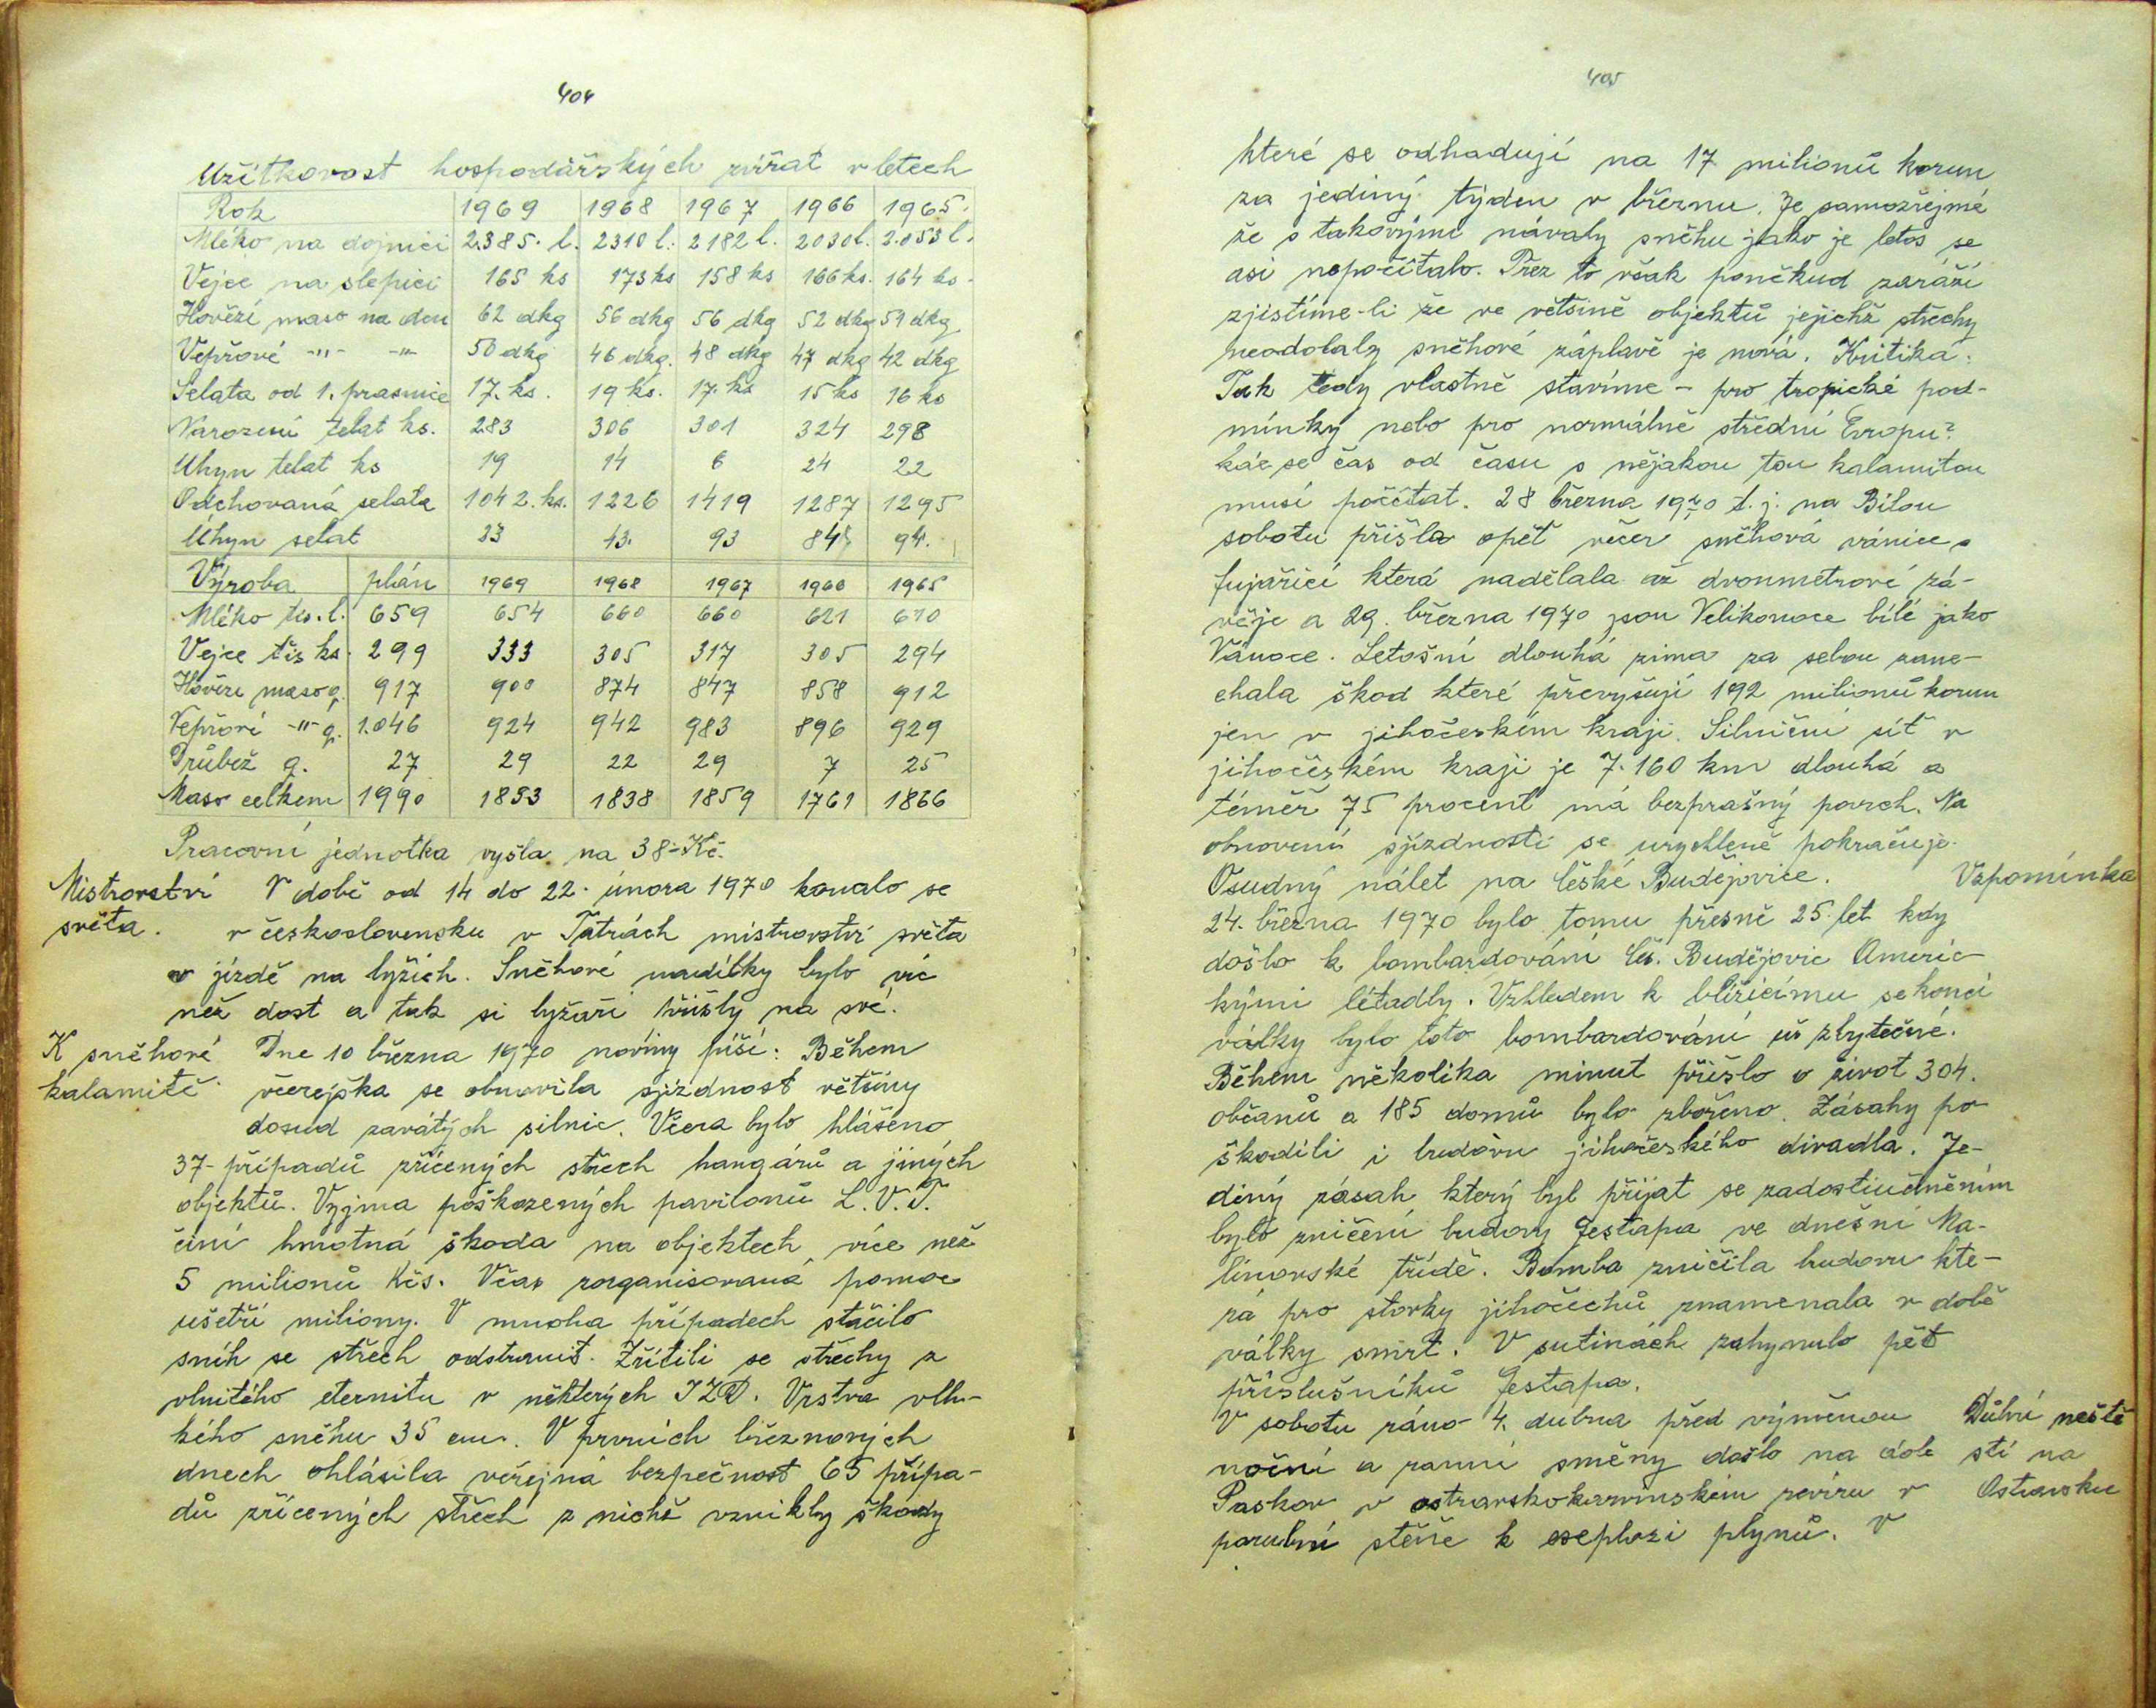 404
Užítkovost hospodářských zvířat v letech
Rok 1969 1968 1967 1966 1965.
Mléko na dojnici 2.385. l. 2310 l. 2182 l. 2030 l. 2.053 l.
Vejce na slepici 165 ks 173 ks 158 ks 166 ks. 164 ks.
Hovězí maso na den 62 dkg 56 dkg 56 dkg 52 dkg 59 dkg
Vepřové -"- -"- 50 dkg 46 dkg. 48 dkg 47 dkg 42 dkg
Selata od 1. prasnice 17. ks. 19 ks. 17. ks 15 ks 16 ks
Narození telat ks. 283 306 301 324 298
Uhyn telat ks 19 14 6 24 22
Odchovaná selata 1042. ks. 1226 1419 1287 1295
Úhyn selat 33 43. 93 84 94.
Výroba plán 1969 1968 1967 1966 1965
Mléko tis. l. 659 654 660 660 621 610
Vejce tis ks. 299 333 305 317 305 294
Hovězí maso q. 917 900 874 847 858 912
Vepřové -"- q. 1.046 924 942 983 896 929
Drůbež q. 27 29 22 29 7 25
Maso celkem 1990 1853 1838 1859 1761 1866
Pracovní jednotka vyšla na 38.-Kč.
Mistrovství V době od 14 do 22. února 1970 konalo se
světa. v československu v Tatrách mistrovství světa
v jízdě na lyžích. Sněhové nadílky bylo víc
než dost a tak si lyžaři přišly na své.
K sněhové Dne 10 března 1970 noviny píší: Během
kalamitě včerejška se obnovila sjízdnost většiny
dosud zavátých silnic. Včera bylo hlášeno
37- případů zřícených střech hangárů a jiných
objektů. Vyjma poškozených pavilonů L.V.T.
činí hmotná škoda na objektech více než
5 milionů Kčs. Včas zorganisovaná pomoc
ušetří miliony. V mnoha případech stačilo
sníh se střech odstranit. Zřítili se střechy z
vlnitého eternitu v některých JZD. Vrstva vlh-
kého sněhu 35 cm. V prvních březnových
dnech ohlásila veřejná bezpečnost 65 přípa-
dů zřícených střech z nichž vznikly škody
405
které se odhadují na 17 milionů korun
za jediný týden v březnu. Je samozřejmé
že s takovými návaly sněhu jako je letos se
asi nepočítalo. Přez to však poněkud zaráží
zjistíme-li že ve většině objektů jejichž střechy
neodolaly sněhové záplavě je nová. Kritika:
Tak tedy vlastně stavíme - pro tropické pod-
mínky nebo pro normálně střední Evropu?
kde se čas od času s nějakou tou kalamitou
musí počítat. 28 března 1970 t. j. na Bílou
sobotu přišla opět večer sněhová vánice s
fujařicí která nadělala až dvoumetrové zá-
věje a 29. března 1970 jsou Velikonoce bílé jako
Vánoce. Letošní dlouhá zima za sebou zane-
chala škod které převyšují 192 milionů korun
jen v jihočeském kraji. Silniční síť v
jihočeském kraji je 7.160 km dlouhá a
téměř 75 procent má bezprašný povrch. Na
obnovení sjízdnosti se urychleně pokračuje.
Osudný nálet na České Budějovice. Vzpomínka
24. března 1970 bylo tomu přesně 25. let kdy
došlo k bombardování Čes. Budějovic Americ-
kými létadly. Vzhledem k blížícímu se konci
války bylo toto bombardování už zbytečné.
Během několika minut přišlo o život 304.
občanů a 185 domů bylo zbořeno. Zásahy po
škodili i budovu jihočeského divadla. Je-
diný zásah který byl přijat se zadostiučněním
bylo zničení budovy Gestapa ve dnešní Ma-
linovské třídě. Bomba zničila budovu kte-
rá pro stovky jihočechů znamenala v době
války smrt. V sutinách zahynulo pět
příslušníků Gestapa.
V sobotu ráno 4. dubna před výměnou Důlní neště
noční a ranní směny došlo na dole stí na
Paskov v ostravskokarvinském revíru v Ostravsku
porubní stěně k exeplozi plynů. V